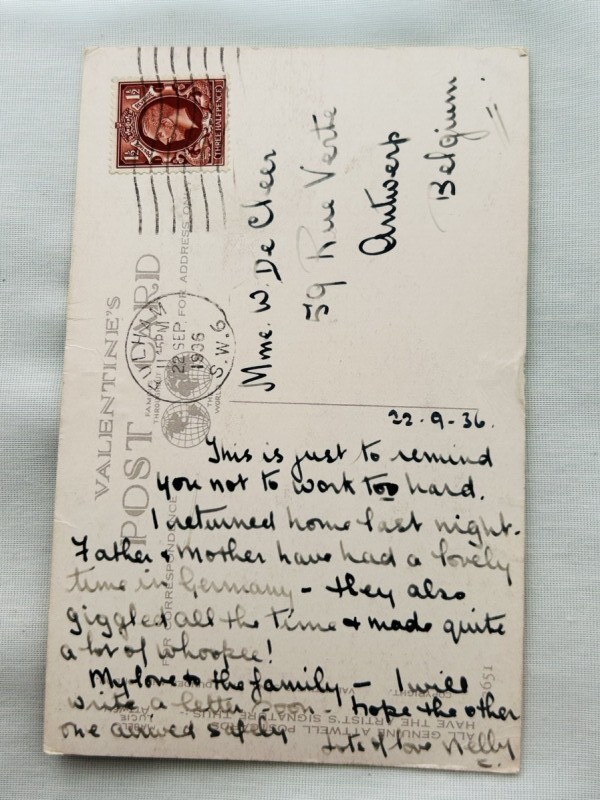 1½ 1½
THREE HALFPENCE
VALENTINE'S
POST CARD
FAMOUS
THROUGHOUT
THE
WORLD
FOR ADDRESS ONLY
FOR CORRESPONDENCE
FULHAM
PM
22 SEP
1936
S.W.6
Mme. W. De Cleer
59 Rue Verte
Antwerp
Belgium.
22.9.36.
This is just to remind
you not to work too hard.
I returned home last night.
Father & Mother have had a lovely
time in Germany - they also
giggled all the time & made quite
a lot of whoopee!
My love to the family - I will
write a letter soon - hope the other
one arrived safely Lots of love Nelly
ALL GENUINE ATTWELL
HAVE THE ARTIST'S SIGNATURE THUS:-
MABEL
LUCIE
ATTWELL
COPYRIGHT.